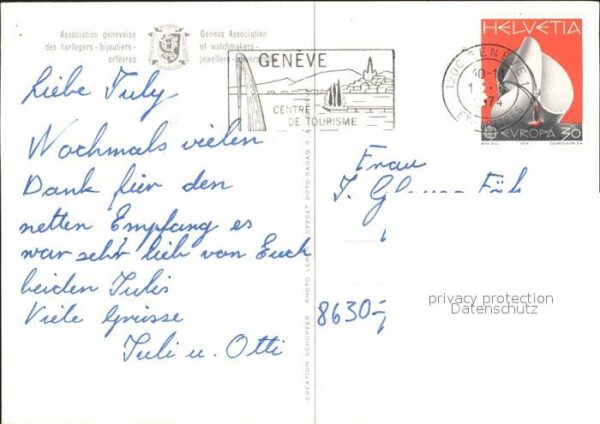 Association genevoise
des horlogers - bijoutiers -
orfèvres
Geneva Association
of watchmakers -
jewellers -
GENÈVE
CENTRE
DE TOURISME
1200 GENÈVE 1
74
HELVETIA
EUROPA 30
MAX BILL 1974 COURVOISIER SA
Liebe July
Nochmals vielen
Dank für den
netten Empfang es
war sehr lieb von Euch
beiden Julis
Viele Grüsse
Juli u. Otti
CREATION SCHÖPFER
OFFSET ROTO-SADAG S.A.
Frau
J.
8630-
privacy protection
Datenschutz